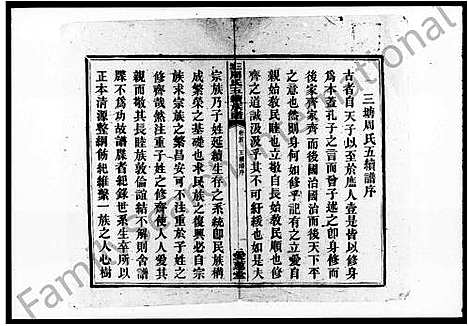 三塘周氏五續譜序
古者自天子以至於庶人壹是皆以修身
為本蓋孔子之言而曾子述之卽身修而
後家齊家齊而後國治國治而後天下平
之意也然則身何如修乎記有之立愛自
親始教民睦也立敬自長始教民順也修
齊之道誠汲汲乎其不可紓緩也如是夫
三塘周氏五續族譜
卷首 五續譜序
愛蓮堂
宗族乃子姓延續生存之系統卽民族組
成繁榮之基礎也求民族之復興必自宗
族求宗族之繁昌安可不注重於子姓之
修齊哉注重子姓之修齊俾人人皆以愛
親而敬其長睦族敦倫誼結不解則舍譜
牒不為功故譜牒者紀錄世系生卒所以
正本清源整綱飭紀維繫一族之人心樹
Family Search International